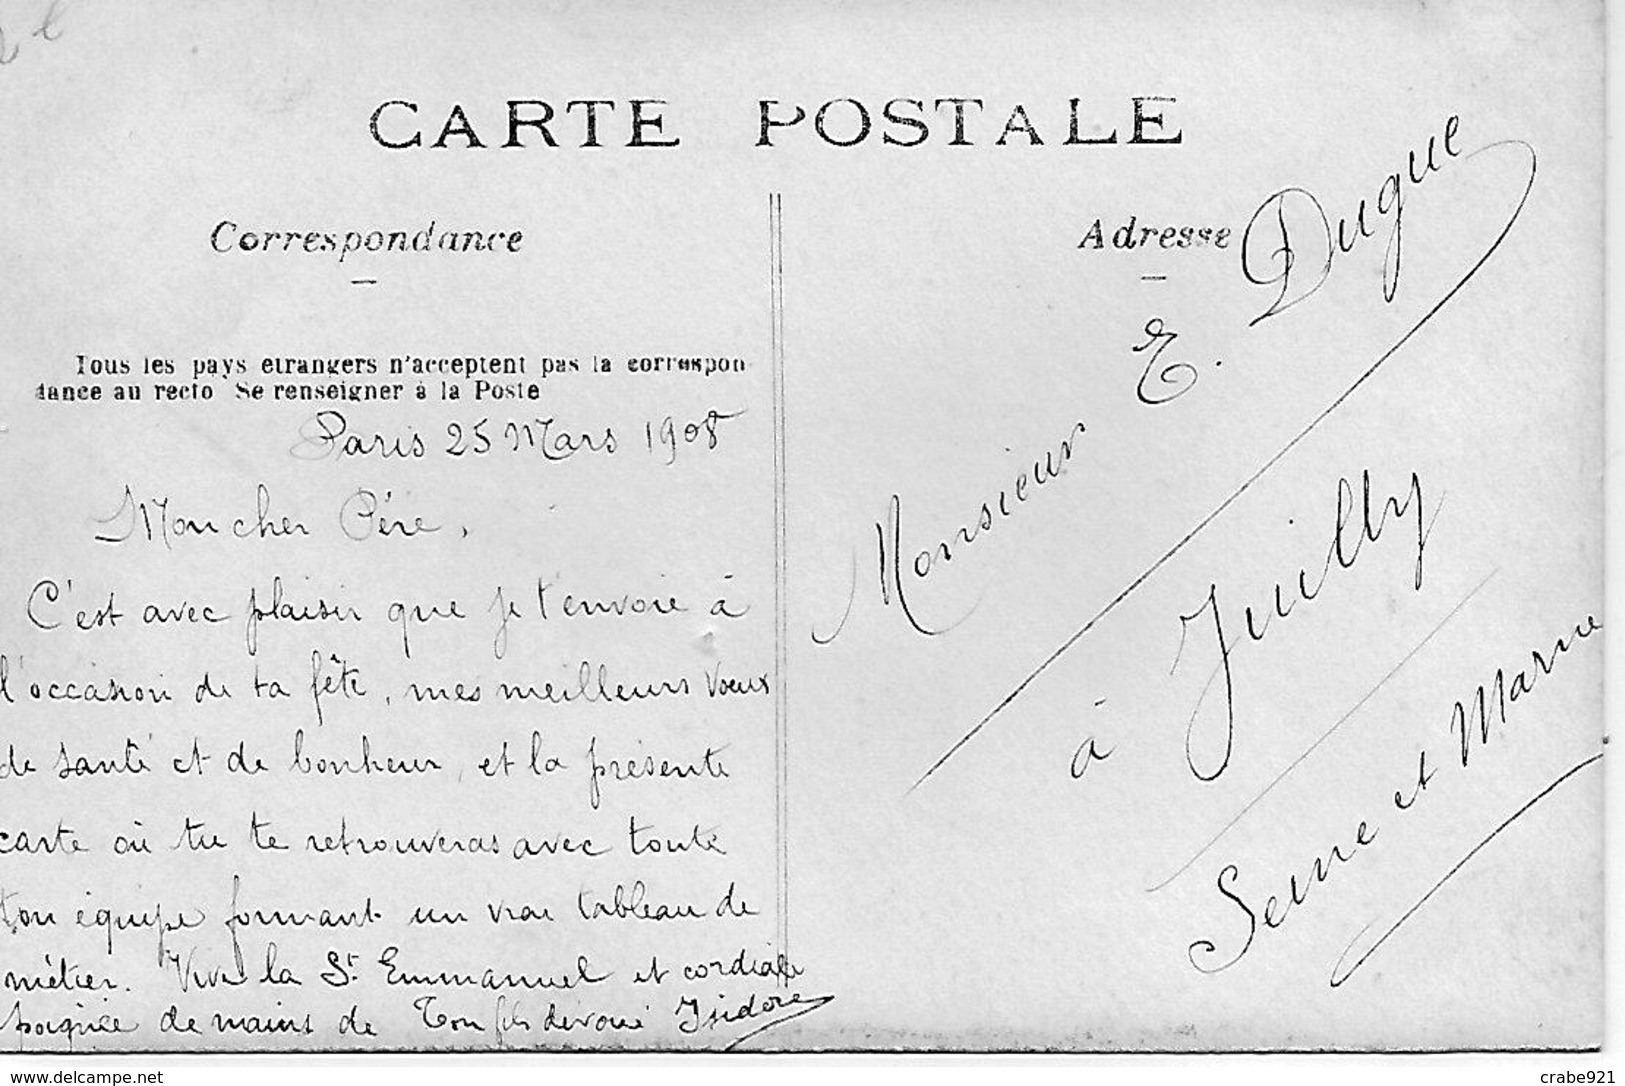 CARTE POSTALE
Correspondance
Adresse
Tous les pays etrangers n'acceptent pas la correspon-
dance au recto Se renseigner à la Poste
Paris 25 Mars 1908
Mon cher Père,
C'est avec plaisir que je t'envoie à
l'occasion de ta fête, mes meilleurs vœux
de santé et de bonheur, et la présente
carte où tu te retrouveras avec toute
ton équipe formant un vrai tableau de
métier. Vive la St Emmanuel et cordiale
poignée de mains de Ton fils dévoué Isidore
Monsieur E. Dugue
à Juilly
Seine et Marne
www.delcampe.net
crabe921